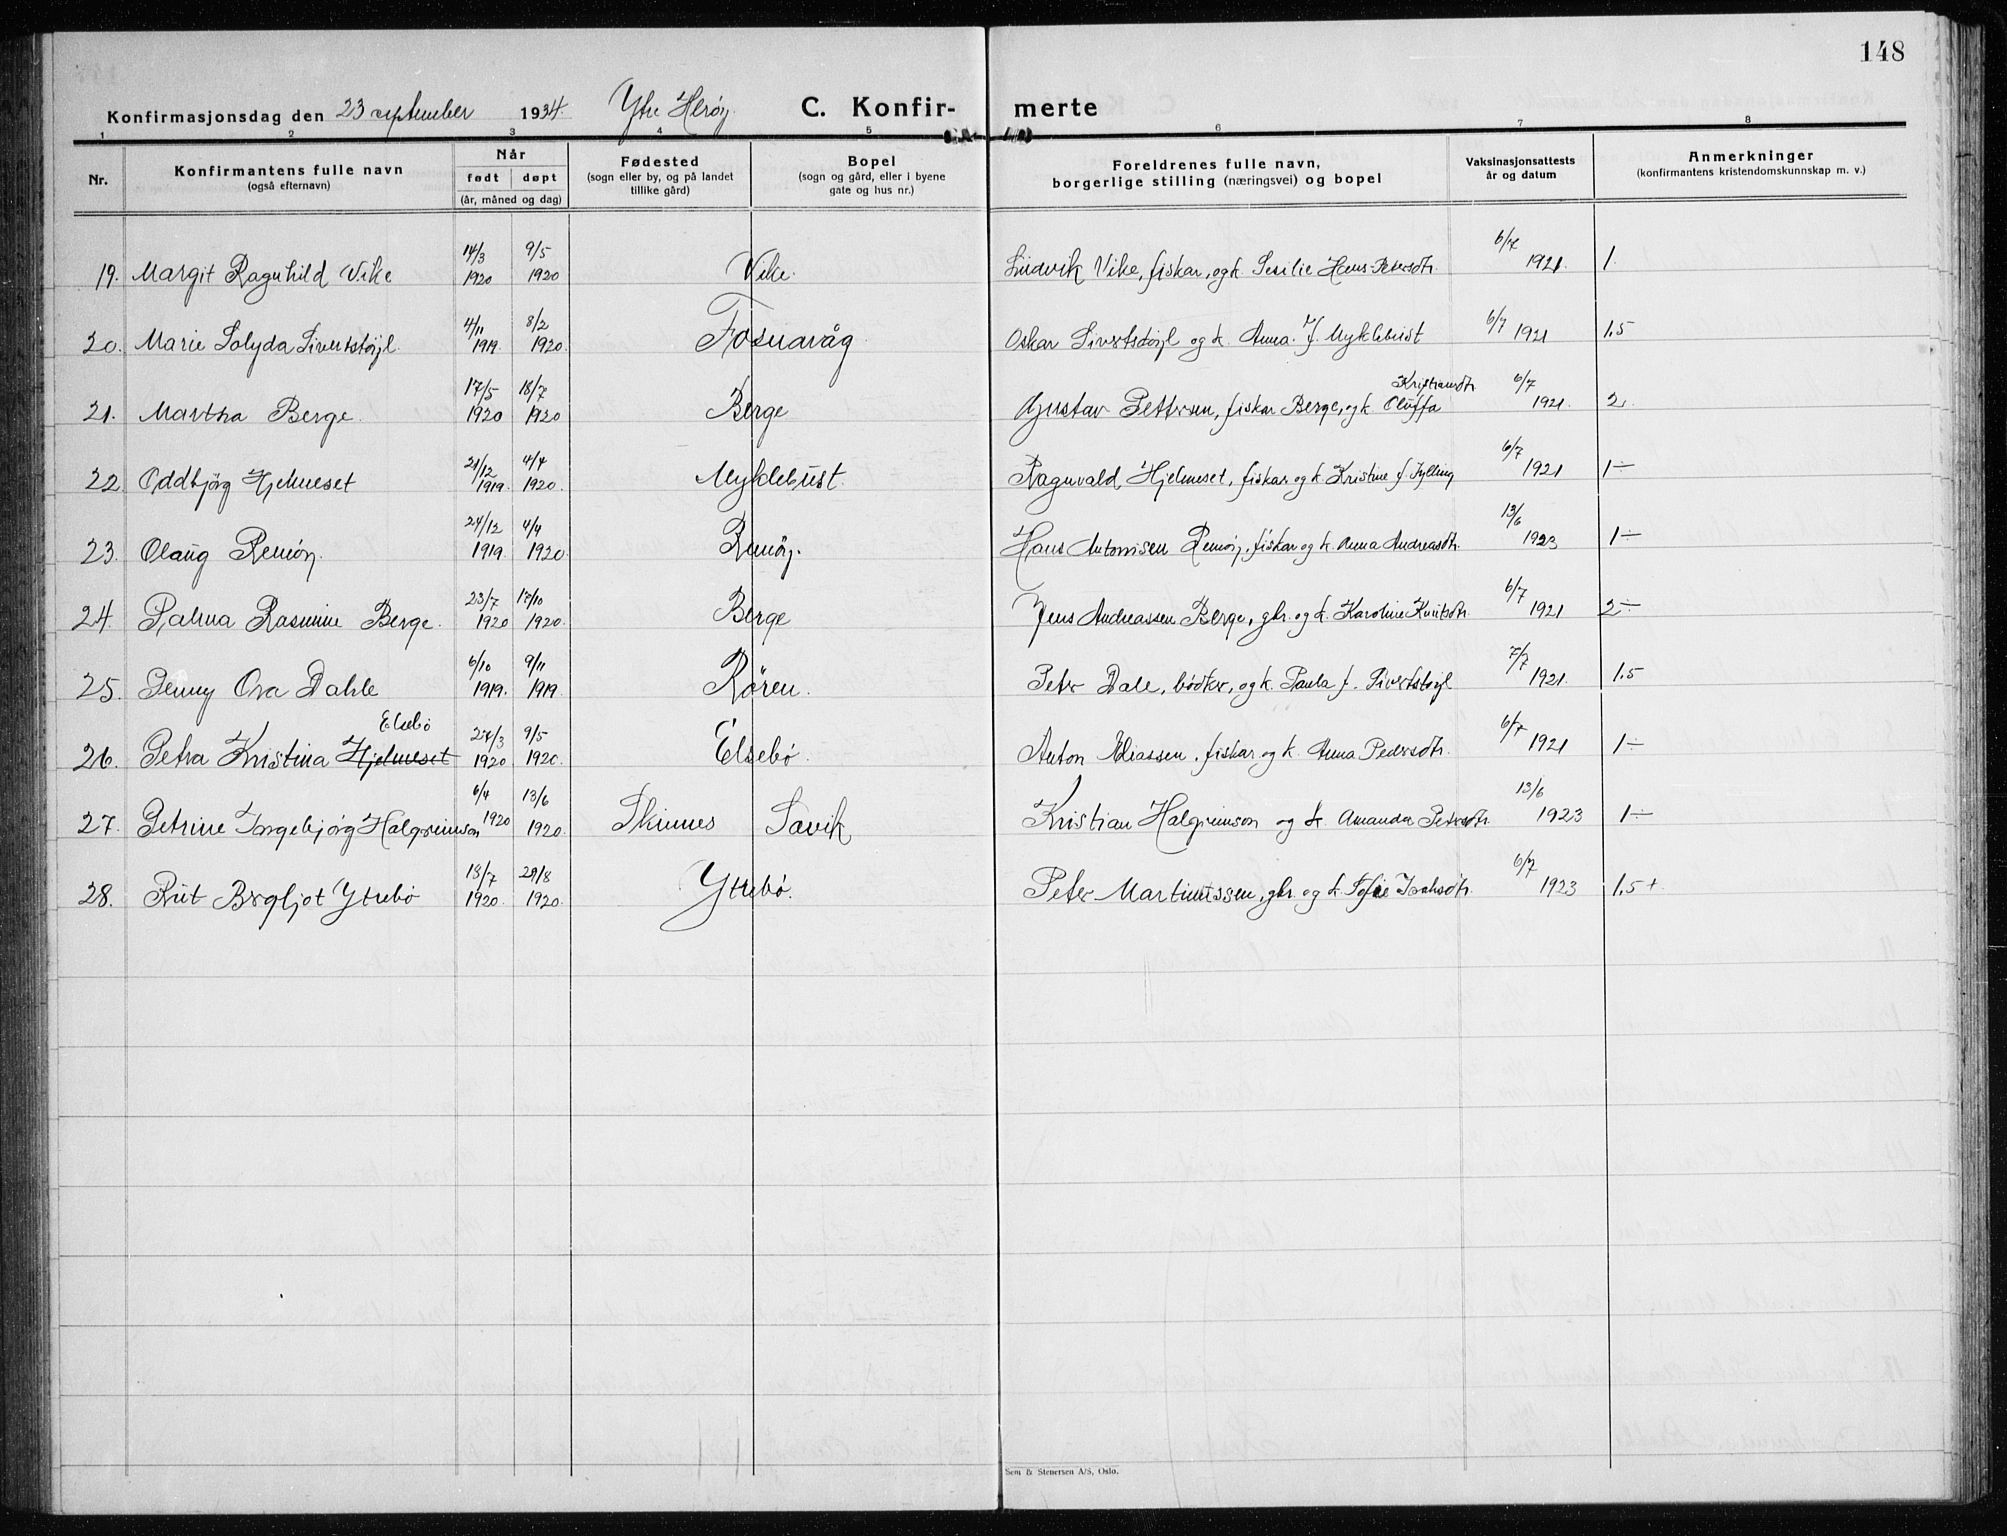 148
Konfirmasjonsdag den 23 september 1934. Ytre Herøy. C. Konfir- merte
1 2 3 4 5 6 7 8
Nr. Konfirmantens fulle navn (også efternavn) Når født døpt (år, måned og dag) Fødested (sogn eller by, og på landet tillike gård) Bopel (sogn og gård, eller i byene gate og hus nr.) Foreldrenes fulle navn, borgerlige stilling (næringsvei) og bopel Vaksinasjonsattests år og datum Anmerkninger (konfirmantens kristendomskunnskap m. v.)
19. Margit Ragnhild Vike 14/3 1920 9/5 1920 Vike. Ludvik Vike, fiskar, og k. Sesilie Hans-Petersdtr. 6/7 1921. 1.
20. Marie Solyda Sivertstøyl 4/11 1919. 8/2 1920. Fosnavåg Oskar Sivertstøyl og k. Anna. f. Myklebust 6/7 1921 1,5
21. Martha Berge. 17/5 1920 18/7 1920 Berge Gustav Pettersen, fiskar Berge, og k. Oluffa Kristiansdtr. 6/7 1921. 2.
22. Oddbjørg Hjelmeset 21/12 1919. 4/4 1920. Myklebust. Ragnvald Hjelmeset, fiskar og k. Kristine f. Jylling 6/7 1921 1÷
23. Olaug Remøy. 24/12 1919. 4/4 1920. Remøy. Hans Antonisen Remøy, fiskar og k. Anna Andreasdtr. 13/6 1923 1÷
24. Palma Rasmine Berge. 23/7 1920 17/10 1920. Berge Jens Andreassen Berge, gbr. og k. Karoline Knutsdtr. 6/7 1921 2÷
25. Penny Ova Dahle 6/10 1919. 9/11 1919. Røren. Peter Dale, bødker, og k. Paula f. Sivertstøyl 7/7 1921. 1,5
26. Petra Kristina Hjelmeset Elsebø 27/3 1920 9/5 1920. Elsebø. Anton Eliassen, fiskar og k. Anna Pedersdtr. 6/7 1921 1÷
27. Petrine Ingebjørg Halgrimson 6/4 1920 13/6 1920. Skinnes Savik Kristian Halgrimson og k. Amanda Petersdtr. 13/6 1923 1÷
28. Rut Bergljot Ytrebø 13/7 1920. 29/8 1920. Ytrebø. Peter Martinussen, gbr. og k. Sofie Isaksdtr. 6/7 1923 1,5+.
Sem & Stenersen A/S, Oslo.